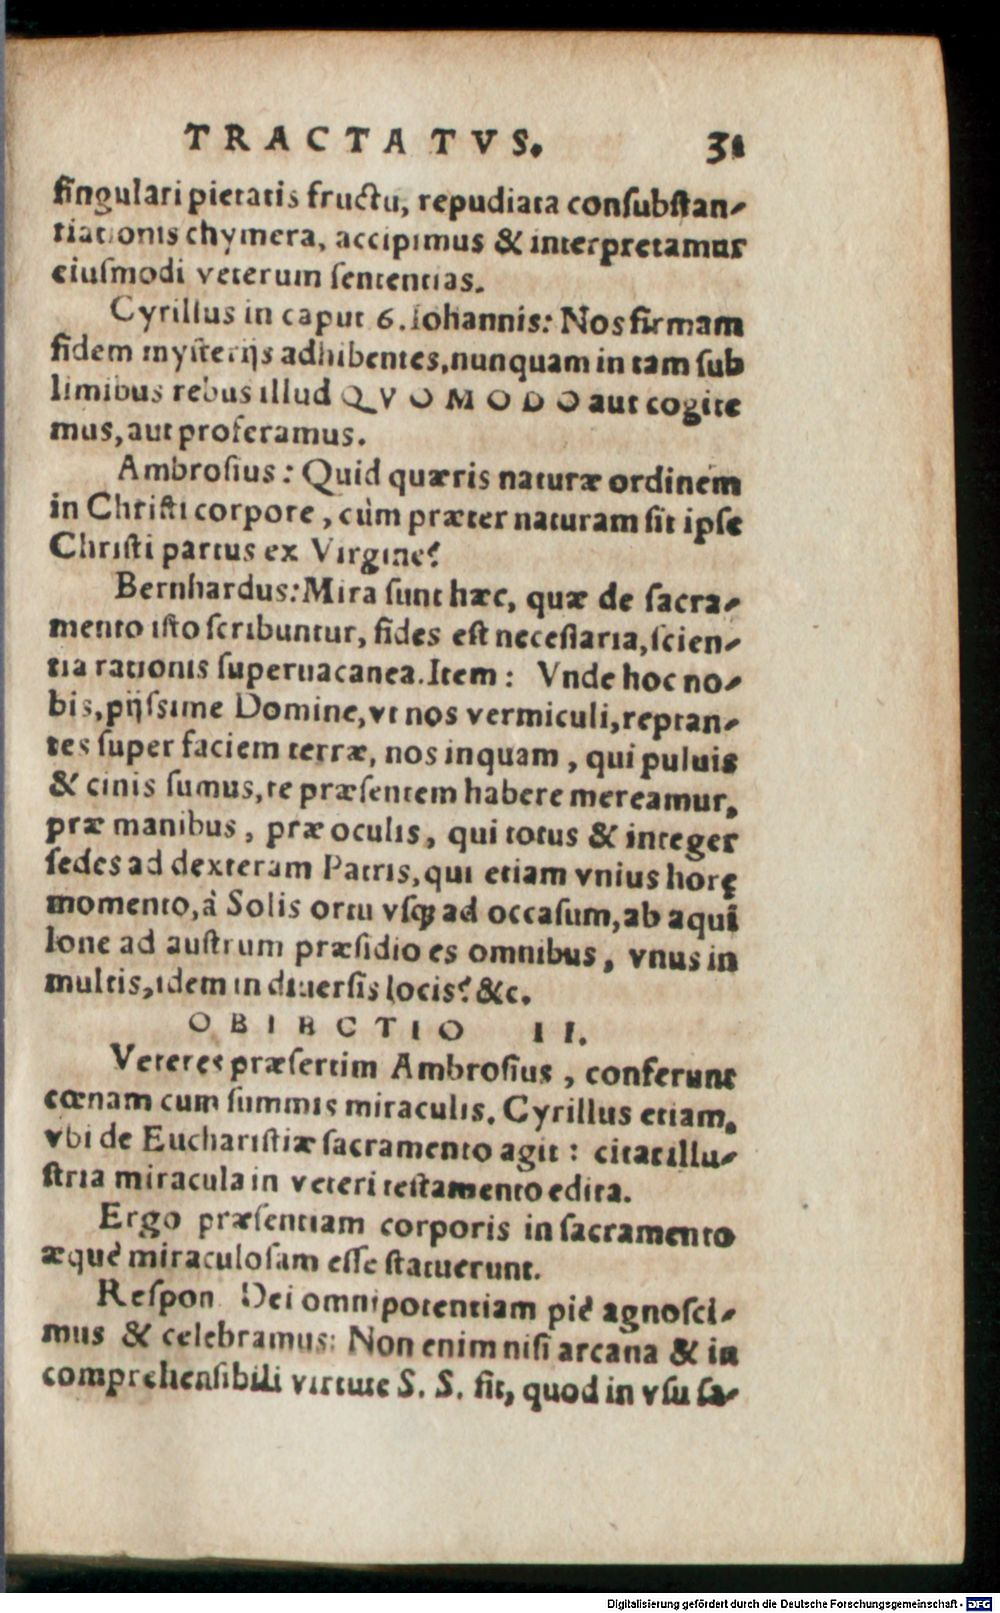 TRACTATVS. 31
ſingulari pietatis fructu, repudiata conſubſtan-
tiationis chymera, accipimus & interpretamur
eiuſmodi veterum ſententias.
Cyrillus in caput 6. Iohannis: Nos firmam
fidem myſterijs adhibentes, nunquam in tam ſub
limibus rebus illud QVOMODO aut cogite
mus, aut proferamus.
Ambroſius: Quid quæris naturæ ordinem
in Chriſti corpore, cùm præter naturam ſit ipſe
Chriſti partus ex Virgine?
Bernhardus: Mira ſunt hæc, quæ de ſacra-
mento iſto ſcribuntur, fides eſt neceſſaria, ſcien-
tia rationis ſuperuacanea. Item: Vnde hoc no-
bis, pijſsime Domine, vt nos vermiculi, reptan-
tes ſuper faciem terræ, nos inquam, qui puluis
& cinis ſumus, te præſentem habere mereamur,
præ manibus, præ oculis, qui totus & integer
ſedes ad dexteram Patris, qui etiam vnius horę
momento, à Solis ortu vſq; ad occaſum, ab aqui
lone ad auſtrum præſidio es omnibus, vnus in
multis, idem in diuerſis locis? &c.
OBIECTIO II.
Veteres præſertim Ambroſius, conferunt
cœnam cum ſummis miraculis. Cyrillus etiam,
vbi de Euchariſtiæ ſacramento agit: citat illu-
ſtria miracula in veteri teſtamento edita.
Ergo præſentiam corporis in ſacramento
æquè miraculoſam eſſe ſtatuerunt.
Reſpon Dei omnipotentiam piè agnoſci-
mus & celebramus: Non enim niſi arcana & in
comprehenſibili virtute S. S. fit, quod in vſu ſa-
Digitalisierung gefördert durch die Deutsche Forschungsgemeinschaft - DFG